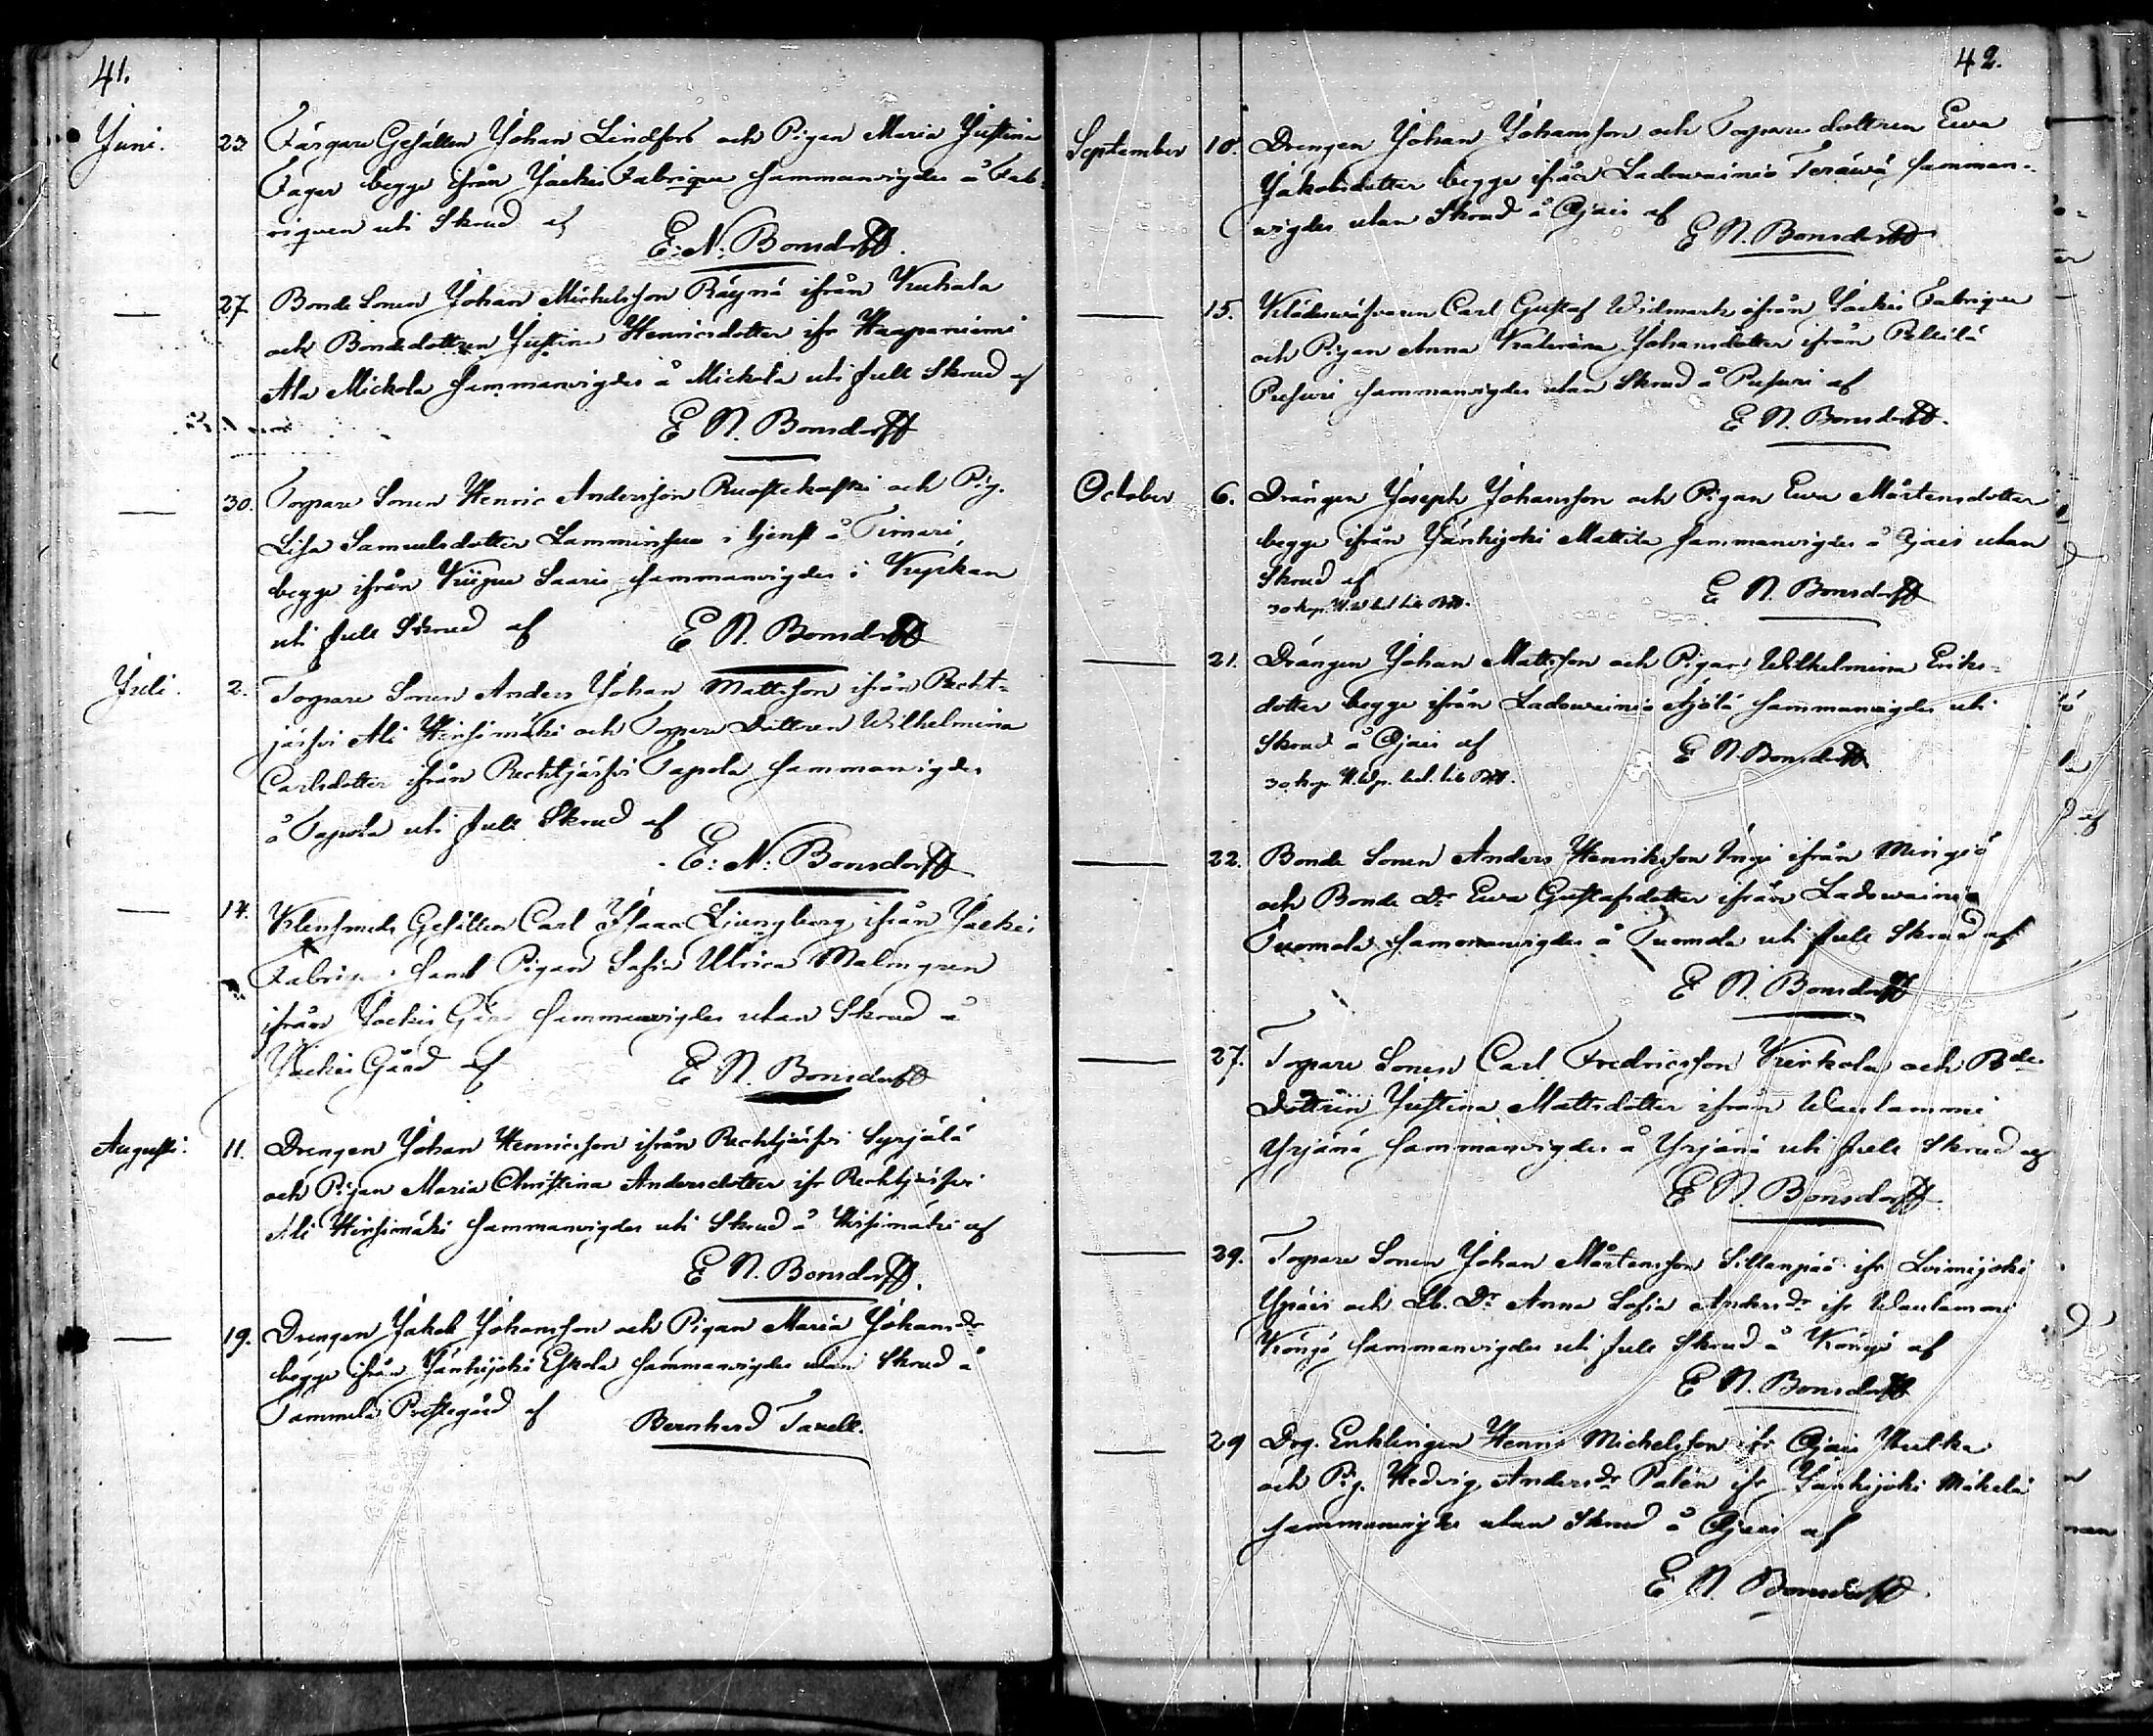 41.
Juni. 23. Färgare Gesällen Johan Lindfors och Pigan Maria Justina
Fager begge ifrån Jockis Fabrique sammanvigdes å Fab-
riquen uti Skrud af
E: N: Bonsdorff.
27 Bonde Sonen Johan Michelsson Räynä ifrån Kuhala
och Bondedottren Justina Henricsdotter ifr Haapaniemi
Ala Mickola sammanvigdes å Mickola uti full Skrud af
E N. Bonsdorff
30. Torpare Sonen Henric Andersson Ruostekoski och Pig.
Lisa Samuelsdotter Lamminsuo i tjenst å Timari,
begge ifrån Saaris sammanvigdes i Kyrkan
uti full Skrud af
E N. Bonsdorff
Juli. 2. Torpare Sonen Anders Johan Mattsson ifrån Recht-
järfvi Ali Hirsimäki och Torpare Dottren Wilhelmina
Carlsdotter ifrån Rechtjärfvi Tapola sammanvigdes
å Tapola uti full Skrud af
E: N: Bonsdorff
14. Klensmeds Gesällen Carl Isaac Ljungberg ifrån Jockis
Fabrique samt Pigan Sofia Ulrica Malmgren
ifrån Jockis Gård sammanvigdes utan Skrud å
Jockis Gård af
E N. Bonsdorff
Augusti. 11. Drengen Johan Henricsson ifrån Rechtjärfvi Syrjälä
och Pigan Maria Christina Andersdotter ifr Rechtjärfvi
Ali Hirsimäki sammanvigdes uti Skrud å Hirsimäki af
E N. Bonsdorff.
19. Drengen Jakob Johansson och Pigan Maria Johansdr
begge ifrån Jänhijoki Eskola sammanvigdes utan Skrud å
Tammela Prestegård af
Bernhard Taxell.
42.
September 10. Drengen Johan Johansson och Torpare dottren Ewa
Jakobsdotter begge ifrån Ladowainio Teräwä samman-
vigdes utan Skrud å Ojais af
E N. Bonsdorff
15. Klädeswäfvaren Carl Gustaf Widmark ifrån Jockis Fabrique
och Pigan Anna Katarina Johansdotter ifrån Peltilä
Pusuri sammanvigdes utan Skrud å Pusuri af
E N. Bonsdorff.
October 6. Drängen Joseph Johansson och Pigan Ewa Mårtensdotter
begge ifrån Jänhijoki Mattila sammanvigdes å Ojais utan
Skrud af
E N. Bonsdorff
30 kop.
21. Drängen Johan Mattsson och Pigan Wilhelmina Eriks-
dotter begge ifrån Ladowainio Äjölä sammanvigdes uti
Skrud å Ojais af
E N. Bonsdorff
30. kop.
22. Bonde Sonen Anders Henriksson Ingi ifrån Mingiö
och Bonde Dr Ewa Gustafsdotter ifrån Ladowainio
Tuomola sammanvigdes å Tuomola uti full Skrud af
E N. Bonsdorff
27. Torpare Sonen Carl Fredricsson Kerkola och Bde
Dottren Justina Mattsdotter ifrån Waulammi
Yrjänä sammanvigdes å Yrjänä uti full Skrud af
E N. Bonsdorff.
29. Torpare Sonen Johan Mårtensson Sillanpää ifr Loimijoki
Ypäis och Dr Anna Sofia Andersdr ifr Waulammi
Köngö sammanvigdes uti full Skrud å Köngö af
E N. Bonsdorff
29 Drg. Enklingen Henric Michelsson ifr Ojais Hulka
och Pig. Hedvig Andersdr Palén ifr Jänhijoki Mäkelä
sammanvigdes utan Skrud å Ojais af
E N. Bonsdorff.